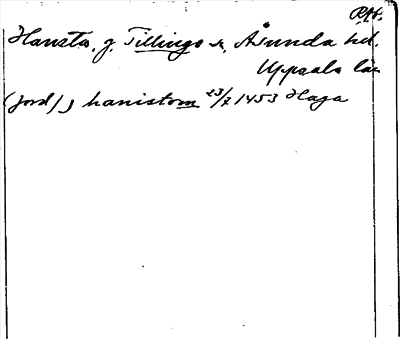 RAp.
Hansta, g Tillinge sn, Åsunda hd.
Uppsala län
(jord) j hanistom 23/7 1453 Haga